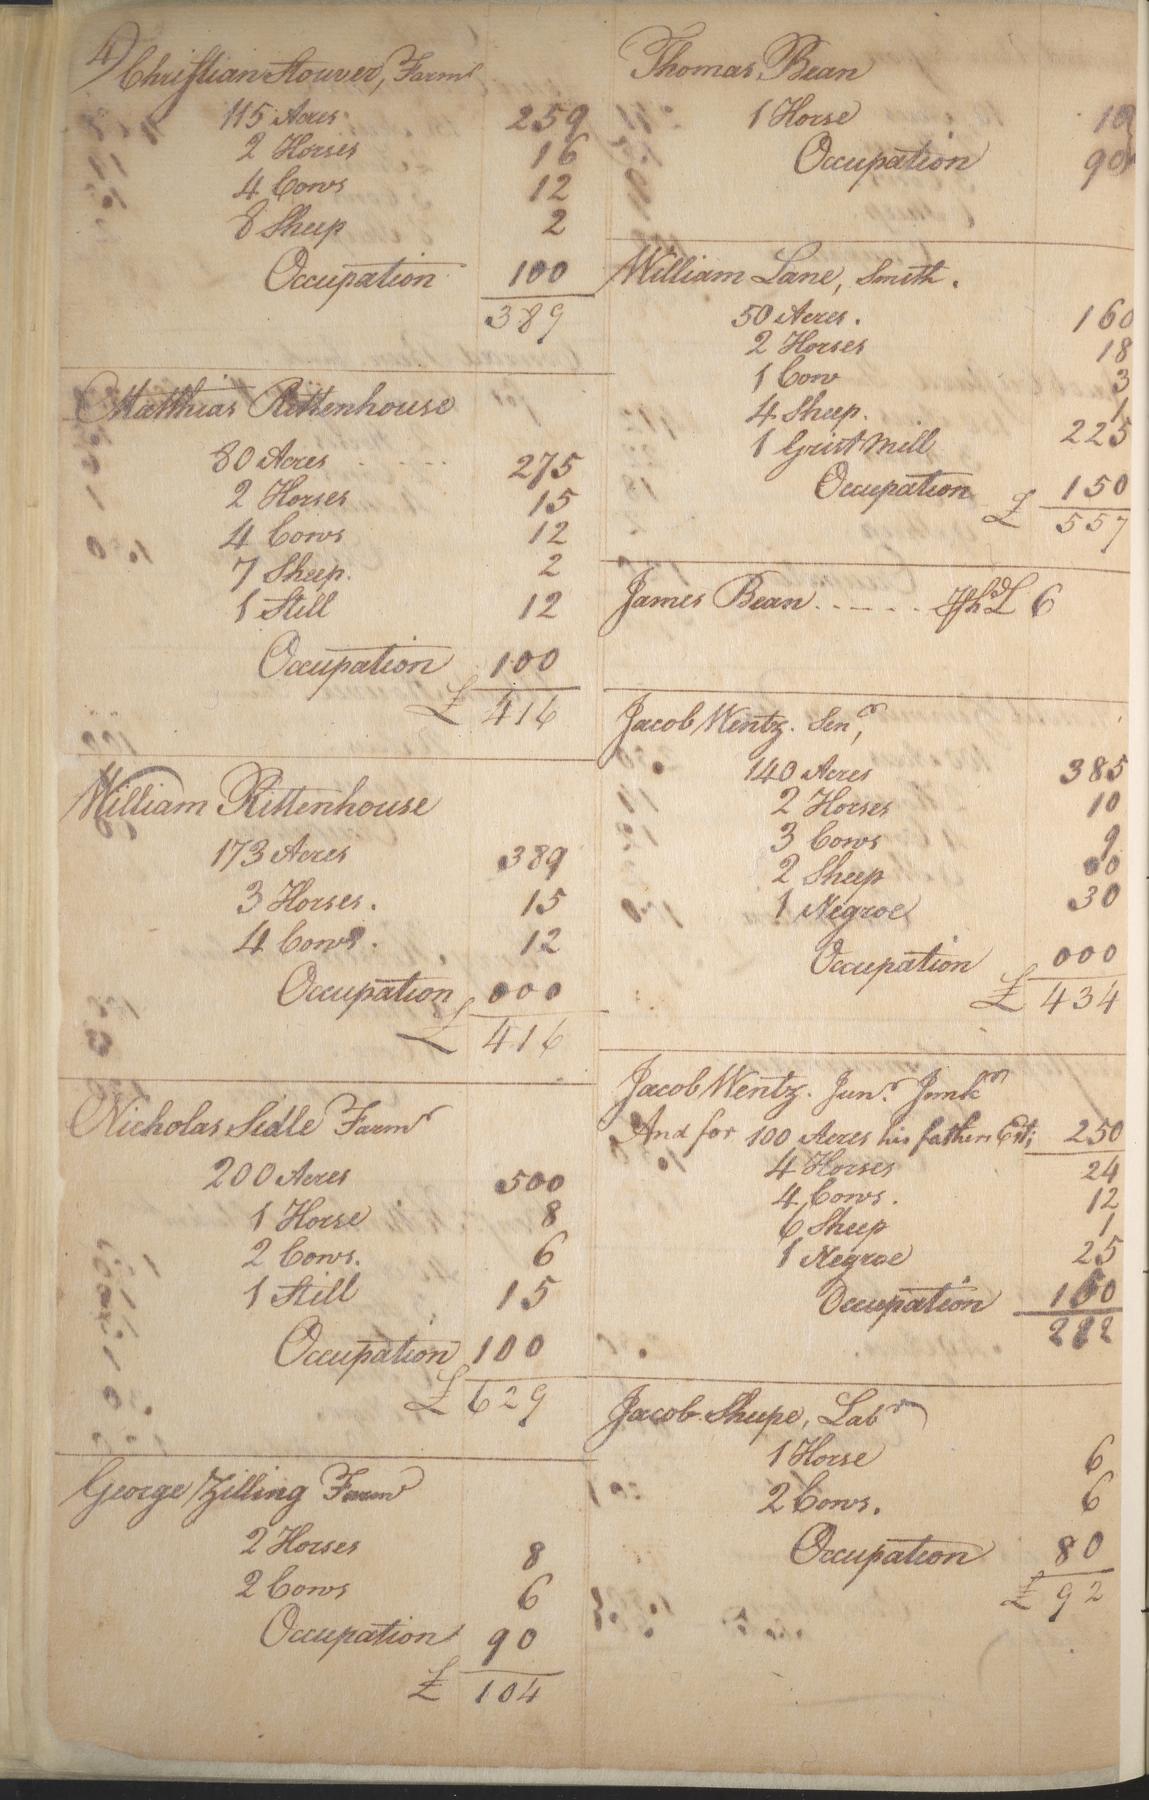 4)
Christian Stouver, Farmr
115 Acres 259
2 Horses 16
4 Cows 12
8 Sheep 2
Occupation 100
389
Matthias Rittenhouse
80 Acres 275
2 Horses 15
4 Cows 12
7 Sheep. 2
1 Still 12
Occupation 100
£ 416
William Rittenhouse
173 Acres 389
3 Horses. 15
4 Cows. 12
Occupation 000
£ 416
Nicholas Sidle Farmr
200 Acres 500
1 Horse 8
2 Cows. 6
1 Still 15
Occupation 100
£ 629
George Zilling Farmr
2 Horses 8
2 Cows 6
Occupation 90
£ 104
Thomas Bean
1 Horse 10
Occupation 90
William Lane, Smith.
50 Acres. 160
2 Horses 18
1 Cow 3
4 Sheep. 1
1 Grist Mill 225
Occupation 150
£ 557
James Bean 6
Jacob Wentz. Senr,
140 Acres 385
2 Horses 10
3 Cows 9
2 Sheep 00
1 Negroe 30
Occupation 000
£ 434
Jacob Wentz. Junr. Innkr
And for 100 Acres his fathers Est; 250
4 Horses 24
4 Cows. 12
6 Sheep 1
1 Negroe 25
Occupation
Jacob Shupe, Labr
1 Horse 6
2 Cows. 6
Occupation 80
£ 92